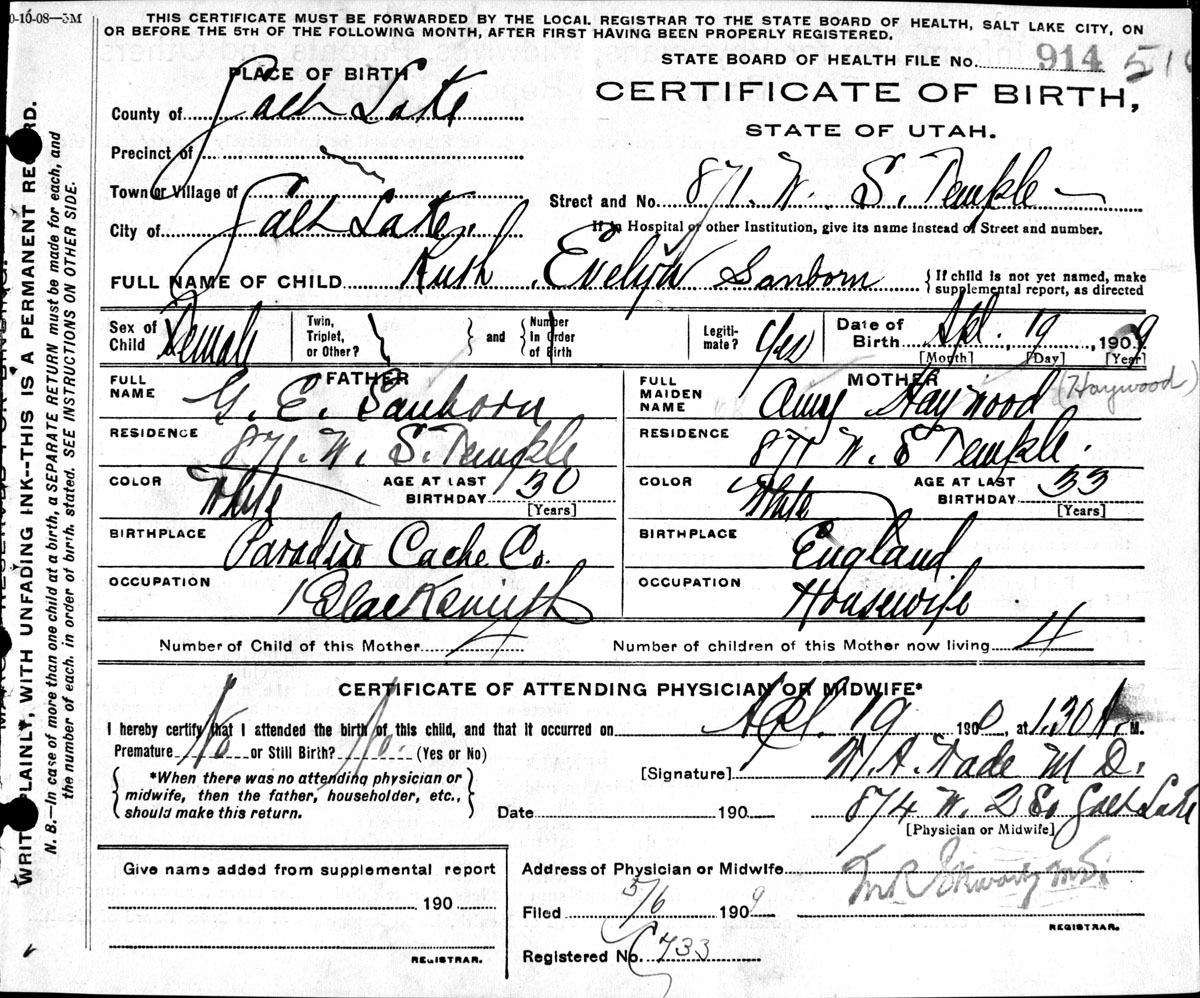 0-16-08—3M
THIS CERTIFICATE MUST BE FORWARDED BY THE LOCAL REGISTRAR TO THE STATE BOARD OF HEALTH, SALT LAKE CITY, ON
OR BEFORE THE 5TH OF THE FOLLOWING MONTH, AFTER FIRST HAVING BEEN PROPERLY REGISTERED.
STATE BOARD OF HEALTH FILE No. 914 516
PLACE OF BIRTH
CERTIFICATE OF BIRTH,
STATE OF UTAH.
County of Salt Lake
Precinct of
Town or Village of
Street and No. 871. W. S. Temple
City of Salt Lake
If in Hospital or other Institution, give its name instead of Street and number.
FULL NAME OF CHILD Ruth Evelyn Sanborn {If child is not yet named, make
supplemental report, as directed
Sex of Child Female
Twin, Triplet, or Other? } and {Number in Order of Birth
Legitimate? Yes
Date of Birth Apl. 19 1909
[Month] [Day] [Year]
FATHER
FULL NAME G. E. Sanborn
RESIDENCE 871. W. S. Temple
COLOR White AGE AT LAST BIRTHDAY 30 [Years]
BIRTHPLACE Paradise Cache Co.
OCCUPATION Blacksmyth
MOTHER
FULL MAIDEN NAME Amy Haywood (Haywood)
RESIDENCE 871 W. S Temple.
COLOR White AGE AT LAST BIRTHDAY 33 [Years]
BIRTHPLACE England
OCCUPATION Housewife
Number of Child of this Mother 4 Number of children of this Mother now living 4
CERTIFICATE OF ATTENDING PHYSICIAN OR MIDWIFE*
I hereby certify that I attended the birth of this child, and that it occurred on Apl. 19 1900, at 1.30 A. M.
Premature No or Still Birth? No. (Yes or No)
{*When there was no attending physician or
midwife, then the father, householder, etc.,
should make this return.}
[Signature] W. A. Wade M D.
Date 190 874 W. 2 So Salt Lake
[Physician or Midwife]
Give name added from supplemental report
190
REGISTRAR.
Address of Physician or Midwife
Filed 5/6 1909
M.D.
REGISTRAR.
Registered No. 733
WRITE PLAINLY, WITH UNFADING INK--THIS IS A PERMANENT RECORD.
N. B.—In case of more than one child at a birth, a SEPARATE RETURN must be made for each, and
the number of each, in order of birth, stated. SEE INSTRUCTIONS ON OTHER SIDE.